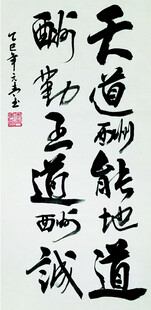 天道酬能地道
酬勤王道酬誠
乙巳年书